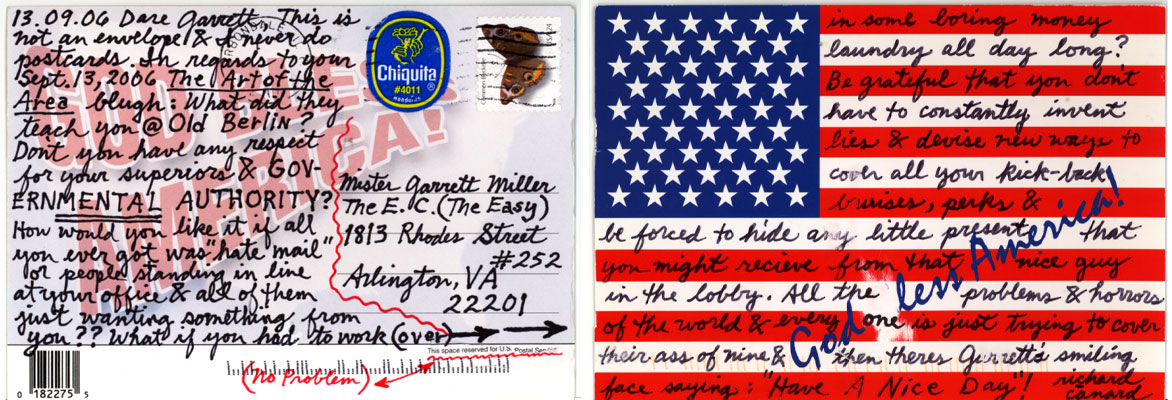 13.09.06 Dare Garrett, This is
not an envelope & I never do
postcards. In regards to your
Sept. 13, 2006 The Art of the
Area blugh: What did they
teach you @ Old Berlin?
Dont you have any respect
for your superiors & GOV-
ERNMENTAL AUTHORITY?
How would you like it if all
you ever got was "hate mail"
or people standing in line
at your office & all of them
just wanting something from
you?? What if you had to work (over)
GOD BLESS
AMERICA!
Chiquita
®
#4011
Mister Garrett Miller
The E.C. (The Easy)
1813 Rhodes Street
#252
Arlington, VA
22201
This space reserved for U.S. Postal Service
(No Problem)
0 182275 5
in some boring money
laundry all day long?
Be grateful that you don't
have to constantly invent
lies & devise new ways to
cover all your kick-back
bruises, perks &
be forced to hide any little present that
you might recieve from that nice guy
in the lobby. All the problems & horrors
of the world & every one is just trying to cover
their ass of nine & then theres Garrett's smiling
face saying: "Have A Nice Day"! richard
canard
God less America!